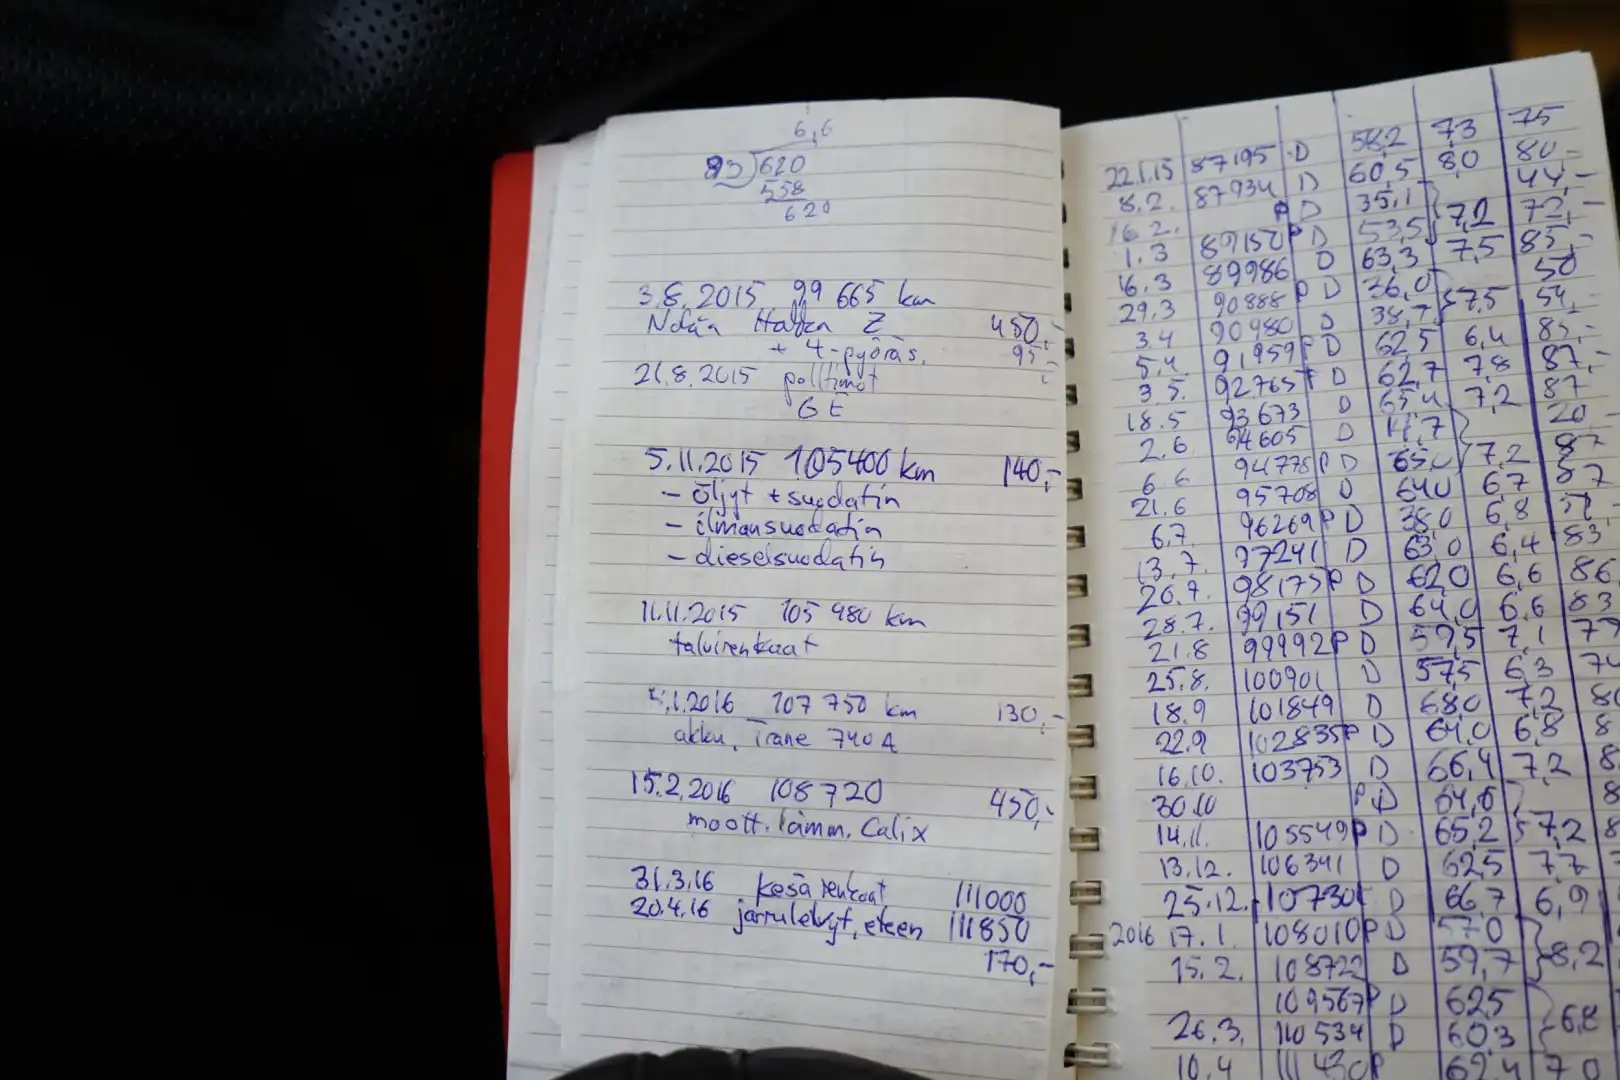 6,6
93 620
558
620
3.8.2015 99 665 km
Hakka Z 450,-
+ 4-pyöräs. 95,-
21.8.2015 polttimot
GE
5.11.2015 105400 km 140,-
- öljyt + suodatin
- ilmansuodatin
- dieselsuodatin
11.11.2015 105 480 km
talvirenkaat
.1.2016 107 750 km 130,-
akku, 740 A
15.2.2016 108720 450,-
moott.lämm. Calix
31.3.16 kesärenkaat 111000
20.4.16 jarrulevyt, eteen 111850
170,-
22.1.15 87195 D 58,2 7,3 75
8.2. 87934 D 60,5 8,0 80,-
16.2. P D 35,1 44,-
1.3 89152 P D 53,5 7,2 72,-
16.3 89986 D 63,3 7,5 85,-
29.3 90888 P D 36,0 50
3.4 90980 D 38,7 7,5 54,-
5.4. 91959 P D 62,5 6,4 85,-
3.5. 92765 P D 62,7 7,8 87,-
18.5 93673 D 65,4 7,2 87
2.6 94605 D 14,7 20,-
6.6 94778 P D 65,0 7,2 87
21.6 95708 D 64,0 6,7 87
6.7. 96269 P D 38,0 6,8
13.7. 97241 D 63,0 6,4 83,
20.7. 98175 P D 62,0 6,6 86,
28.7. 99151 D 64,0 6,6 83
21.8 99992 P D 59,5 7,1 77
25.8. 100901 D 57,5 6,3 74
18.9 101849 D 68,0 7,2
22.9 102835 P D 64,0 6,8
16.10. 103753 D 66,4 7,2
30.10 P D 64,6
14.11. 105549 P D 65,2 7,2
13.12. 106341 D 62,5 7,7
25.12. 107301 D 66,7 6,9
2016 17.1. 108010 P D 57,0
15.2. 108722 D 59,7 8,2
109567 P D 62,5
26.3. 110534 D 60,3 6,8
10.4 111430 P 62,4 7,0